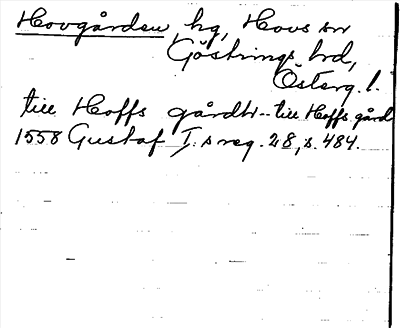 Hovgården, hg, Hovs sn
Göstrings hd,
Österg. l.
till Hoffs gårdh - till Hoffs gård
1558 Gustaf I.s reg. 28, s. 484.